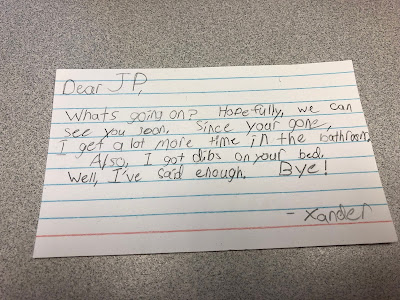 Dear JP,
Whats going on? Hopefully, we can
see you soon. Since your gone,
I get a lot more time in the bathroom.
Also, I got dibs on your bed.
Well, I've said enough. Bye!
- Xander